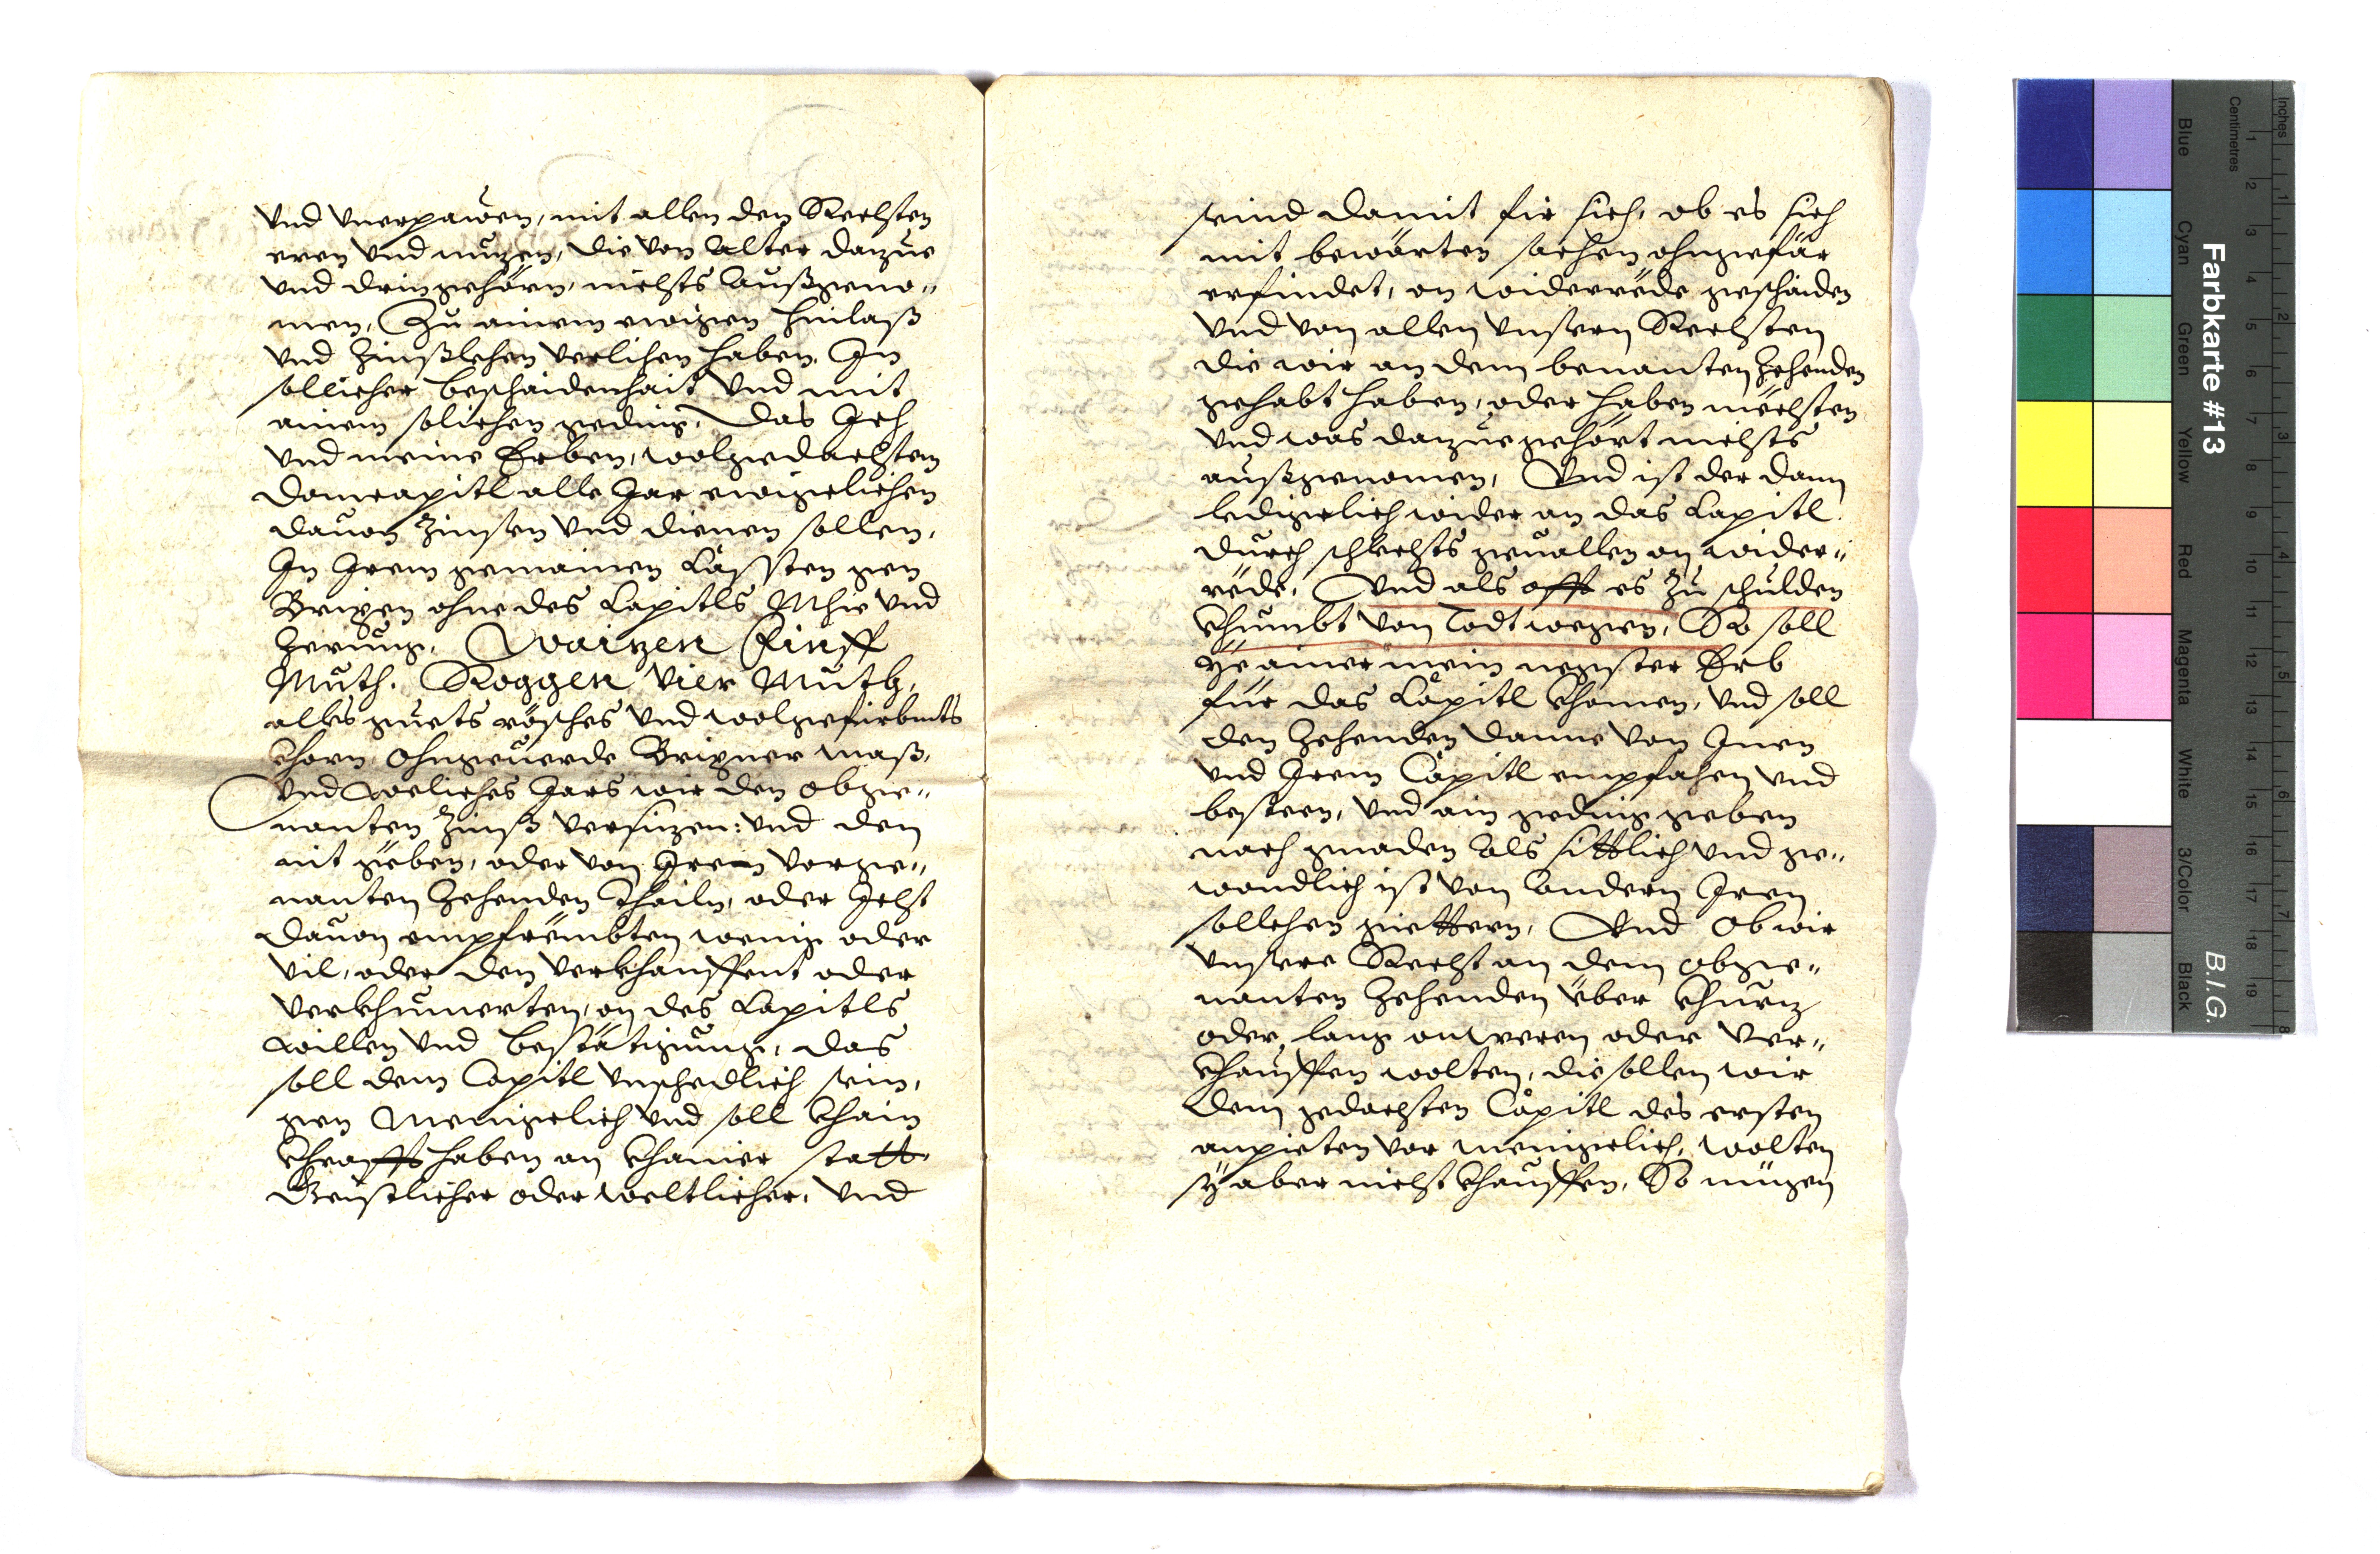 Vnd Vnerpawen, mit allen den Rechsten
eren Vnd nuzen, die Von Alter darzue
Vnd drin gehörn, nichts außgeno„
men, Zu ainem ewigen hinlaß
Vnd Zinßlehen Verlihen haben. In
sollicher beschaidenhait Vnd mit
ainem solichen geding, Das Ich
Vnd meine Erben, wolgedachtem
Domcapitl alle Jar ewigelichen
dauon Zinsen Vnd dienen sollen,
In Irem gemainen Cässten gen
Brixen ohne des Capitls Mhie Vnd
Zerung. Waizen Finff
Muth. Roggen Vier Muth,
alles guets rösches Vnd wolgefürbmts
Chorn, Ohngeuerde Brixner Maß,
Vnd Weliches Jars wir den obge„
nanten Zinß Versizen: Vnd den
nit geben, oder Von Irem Vorge„
nanten Zehenden Thailn, oder Icht
dauon empfrembten wenig oder
Vil, oder den Verkhauffent oder
Verkhumerten, on des Capitls
willen Vnd bestätigung, das
soll dem Capitl Vnschedlich sein,
gen Menigelich Vnd soll Khain
Khrafft haben an Khainer statt,
Geistlicher oder weltlicher, Vnd
seind damit fir sich, ob es sich
mit bewärten sachen ohngefär
erfindet, on widerrede geschaiden
Vnd Von allen Vnsern Rechsten
die wir an dem benanten Zehenden
gehabt haben, oder haben mechten
Vnd was darzue gehört nichts
außgenomen, Vnd ist der dann
ledigelich wider an das Capitl.
durch schlechts geuallen on wider„
rede, Vnd als offt es Zu schulden
Khumbt Von Todt wegen, So soll
ye ainer mein negster Erb
für das Capitl Khomen, Vnd soll
den Zehenden danne Von Inen
Vnd Irem Capitl empfahen Vnd
besteen, Vnd ain geding geben
nach gnaden Als sittlich Vnd ge„
wondlich ist Von Andern Iren
sollehen güettern, Vnd Ob wir
Vnsere Recht an dem obge„
nanten Zehenden über Khurz
oder lang anweren oder Ver„
Khauffen wolten, die sollen wir
dem gedachten Capitl des ersten
anpieten Vor menigelich, wolten
sy aber nicht Khauffen, So mügen
Farbkarte #13
B.I.G.
Inches
Centimetres
Blue
Cyan
Green
Yellow
Red
Magenta
White
3/Color
Black
1 2 3 4 5 6 7 8
1 2 3 4 5 6 7 8 9 10 11 12 13 14 15 16 17 18 19